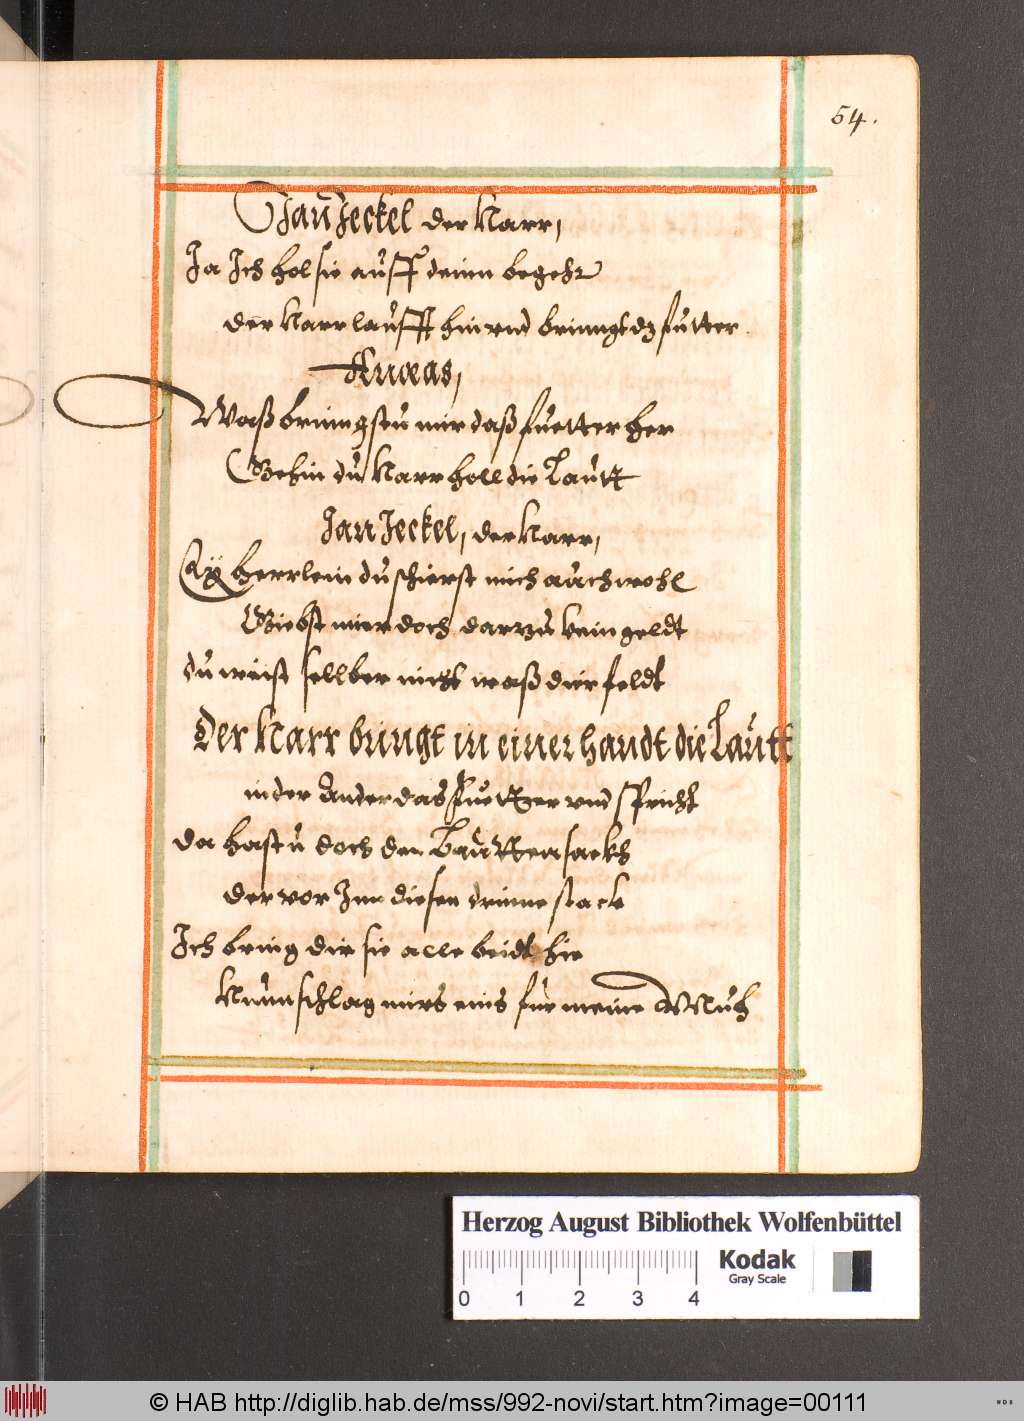 54.
Jan Jeckel der Narr,
Ja Ich hol sie auff deinn begehr
der Narr laufft hin vnd brinngt dz futter
Aneas,
Waß brinngstu mir daß fuetter her
Gehin du Narr holl die Lautt
Jan Jeckel, der Narr,
Ay herrlein du schierst mich auch wohl
Giebst mier doch darzu kein geldt
du weist sellber nicht waß dier feldt
Der Narr bringt in einer handt die Lautt
in der Ander das fuetter vnd spricht
da hastu doch den Lauttensackh
der vor Inn diesen drinne stack
Ich bring dir sie alle beidt hie
Nunn schlag mirs eins für meine Muh
Herzog August Bibliothek Wolfenbüttel
Kodak
Gray Scale
0 1 2 3 4
© HAB http://diglib.hab.de/mss/992-novi/start.htm?image=00111